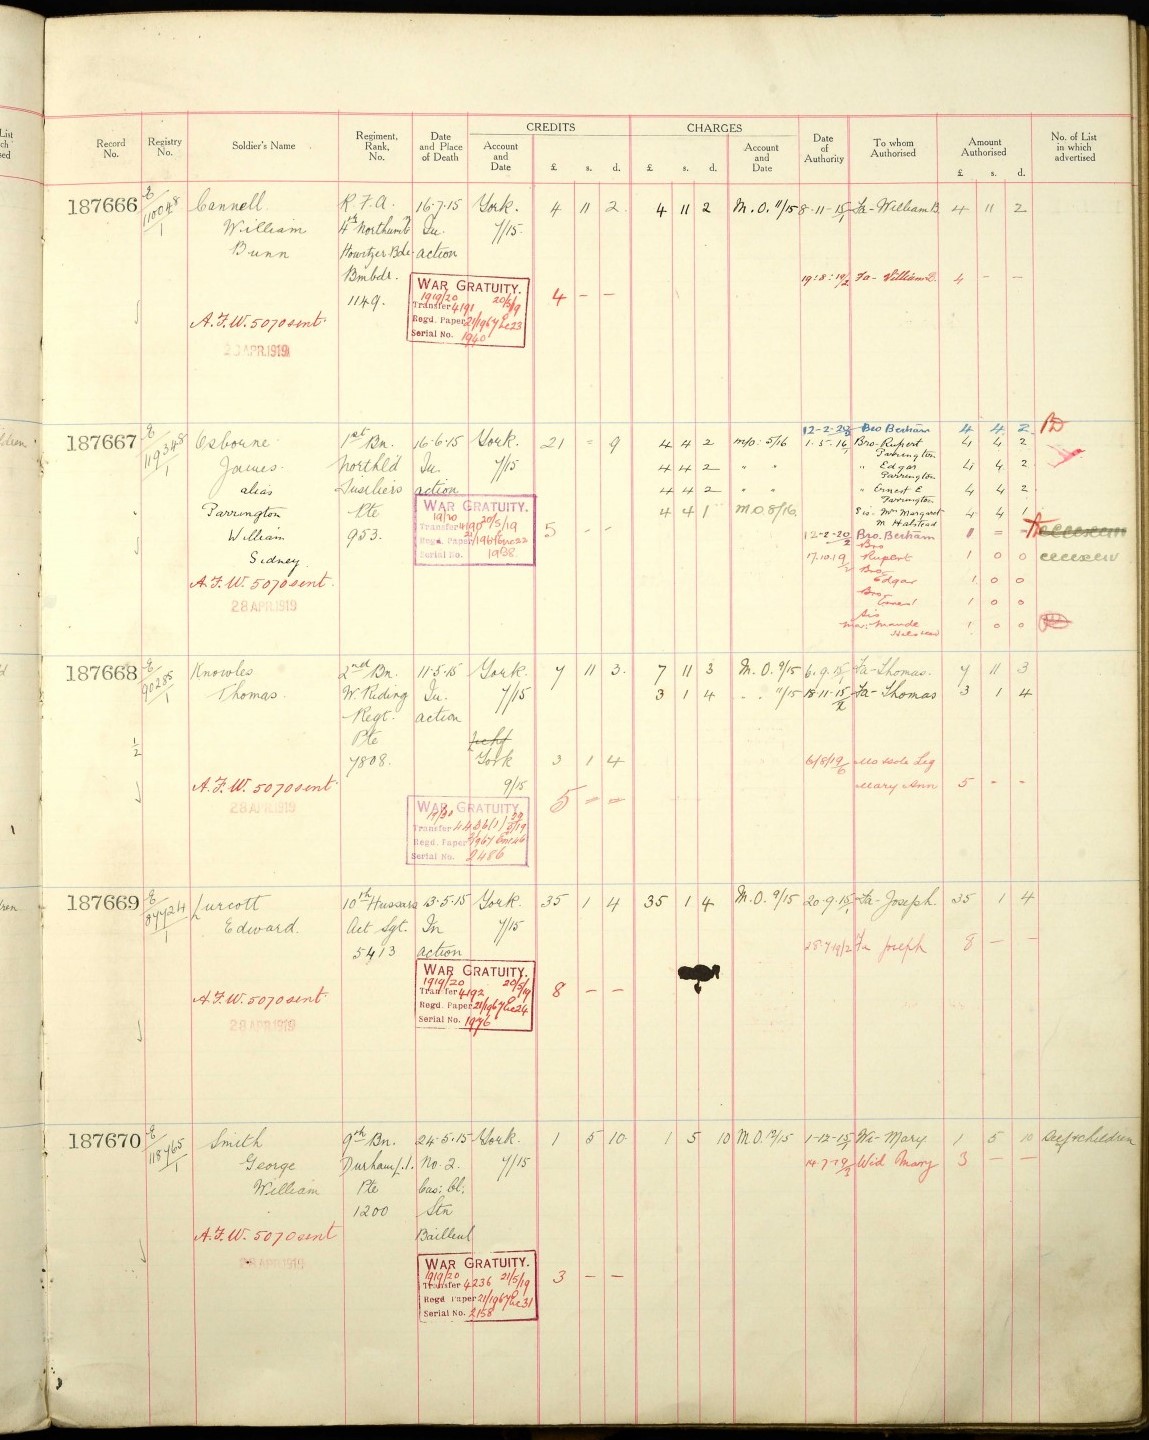 CREDITS CHARGES
Record No. Registry No. Soldier's Name Regiment, Rank, No. Date and Place of Death Account and Date £ s. d. £ s. d. Account and Date Date of Authority To whom Authorised Amount Authorised £ s. d. No. of List in which advertised
187666 E/110048/1 Cannell R.F.A. 16.7.15 York. 4 11 2 4 11 2 M.O. 11/15 8.11.15 Fa-William B. 4 11 2
William 4th Northumb In 7/15
Bunn Howitzer Bde action
Bmbdr. 19:8:19/2 Fa- William B. 4 - -
1149. WAR GRATUITY. 4 - -
1919/20 20/5/19
Transfer 4191
Regd. Paper 21/1967 Pe 23
Serial No. 1940
A.F.W. 5070 sent.
23 APR.1919
187667 E/119348/1 Osborne 1st Bn. 16.6.15 York. 21 = 9 4 4 2 m/o: 5/16
12-2-20 Bro Bertram 4 4 2
James. Northld In 7/15 4 4 2 " " 1.5.16 Bro. Rupert Parrington 4 4 2
alias Fusiliers action 4 4 2 " " " Edgar Parrington 4 4 2
Parrington Pte 4 4 1 M.O. 5/16. " Ernest E Parrington 4 4 2
William 953. Sis. Mrs Margaret M Halstead 4 4 1
Sidney. WAR GRATUITY. 5 - -
19/20 20/5/19
Transfer 4190
Regd. Paper 21/1967
Serial No. 1938
12-2-20/2 Bro. Bertram 1 = -
17.10.19/2 Bro Rupert 1 0 0
Bro. Edgar 1 0 0
Bro. Ernest 1 0 0
Sis Mar: Maude Halstead 1 0 0
A.F.W. 5070 sent.
28 APR.1919
187668 E/90285/1 Knowles 2nd Bn. 11.5.15 York. 7 11 3. 7 11 3 M.O. 9/15 6.9.15 Fa-Thomas. 7 11 3
Thomas. W. Riding In. 7/15 3 1 4 . . 11/15 18.11.15/2 Fa- Thomas 3 1 4
Regt. action
½ Pte
7808. York 3 1 4 6/8/19/6 Mo Sole Leg
9/15 Mary Ann 5 - -
A.F.W. 5070 sent.
28 APR.1919
WAR GRATUITY. 5 = =
19/20
Transfer 4436(1) 29/5/19
Regd. Paper
Serial No. 2486
187669 E/84424/1 Lurcott 10th Hussars 13.5.15 York. 35 1 4 35 1 4 M.O. 9/15 20.9.15/1 Fa-Joseph. 35 1 4
Edward. Act Sgt. In 7/15
5413 action 28.7.19/2 Fa Joseph 8 - -
A.F.W. 5070 sent.
28 APR.1919
WAR GRATUITY. 8 - -
1919/20 20/5/19
Transfer 4192
Regd. Paper 21/1967 Pe 24
Serial No. 1976
187670 E/118765/1 Smith 9th Bn. 24.5.15 York. 1 5 10. 1 5 10 M.O. 12/15 1-12-15/1 Wi- Mary 1 5 10 Self + children
George Durham L.I. No. 2. 7/15 14.7.19/2 Wid Mary 3 - -
William Pte Cas: Cl:
1200 Stn
A.F.W. 5070 sent Bailleul
28 APR.1919
WAR GRATUITY. 3 - -
1919/20 21/5/19
Transfer 4236
Regd Paper 21/1967 Pe 31
Serial No. 2158